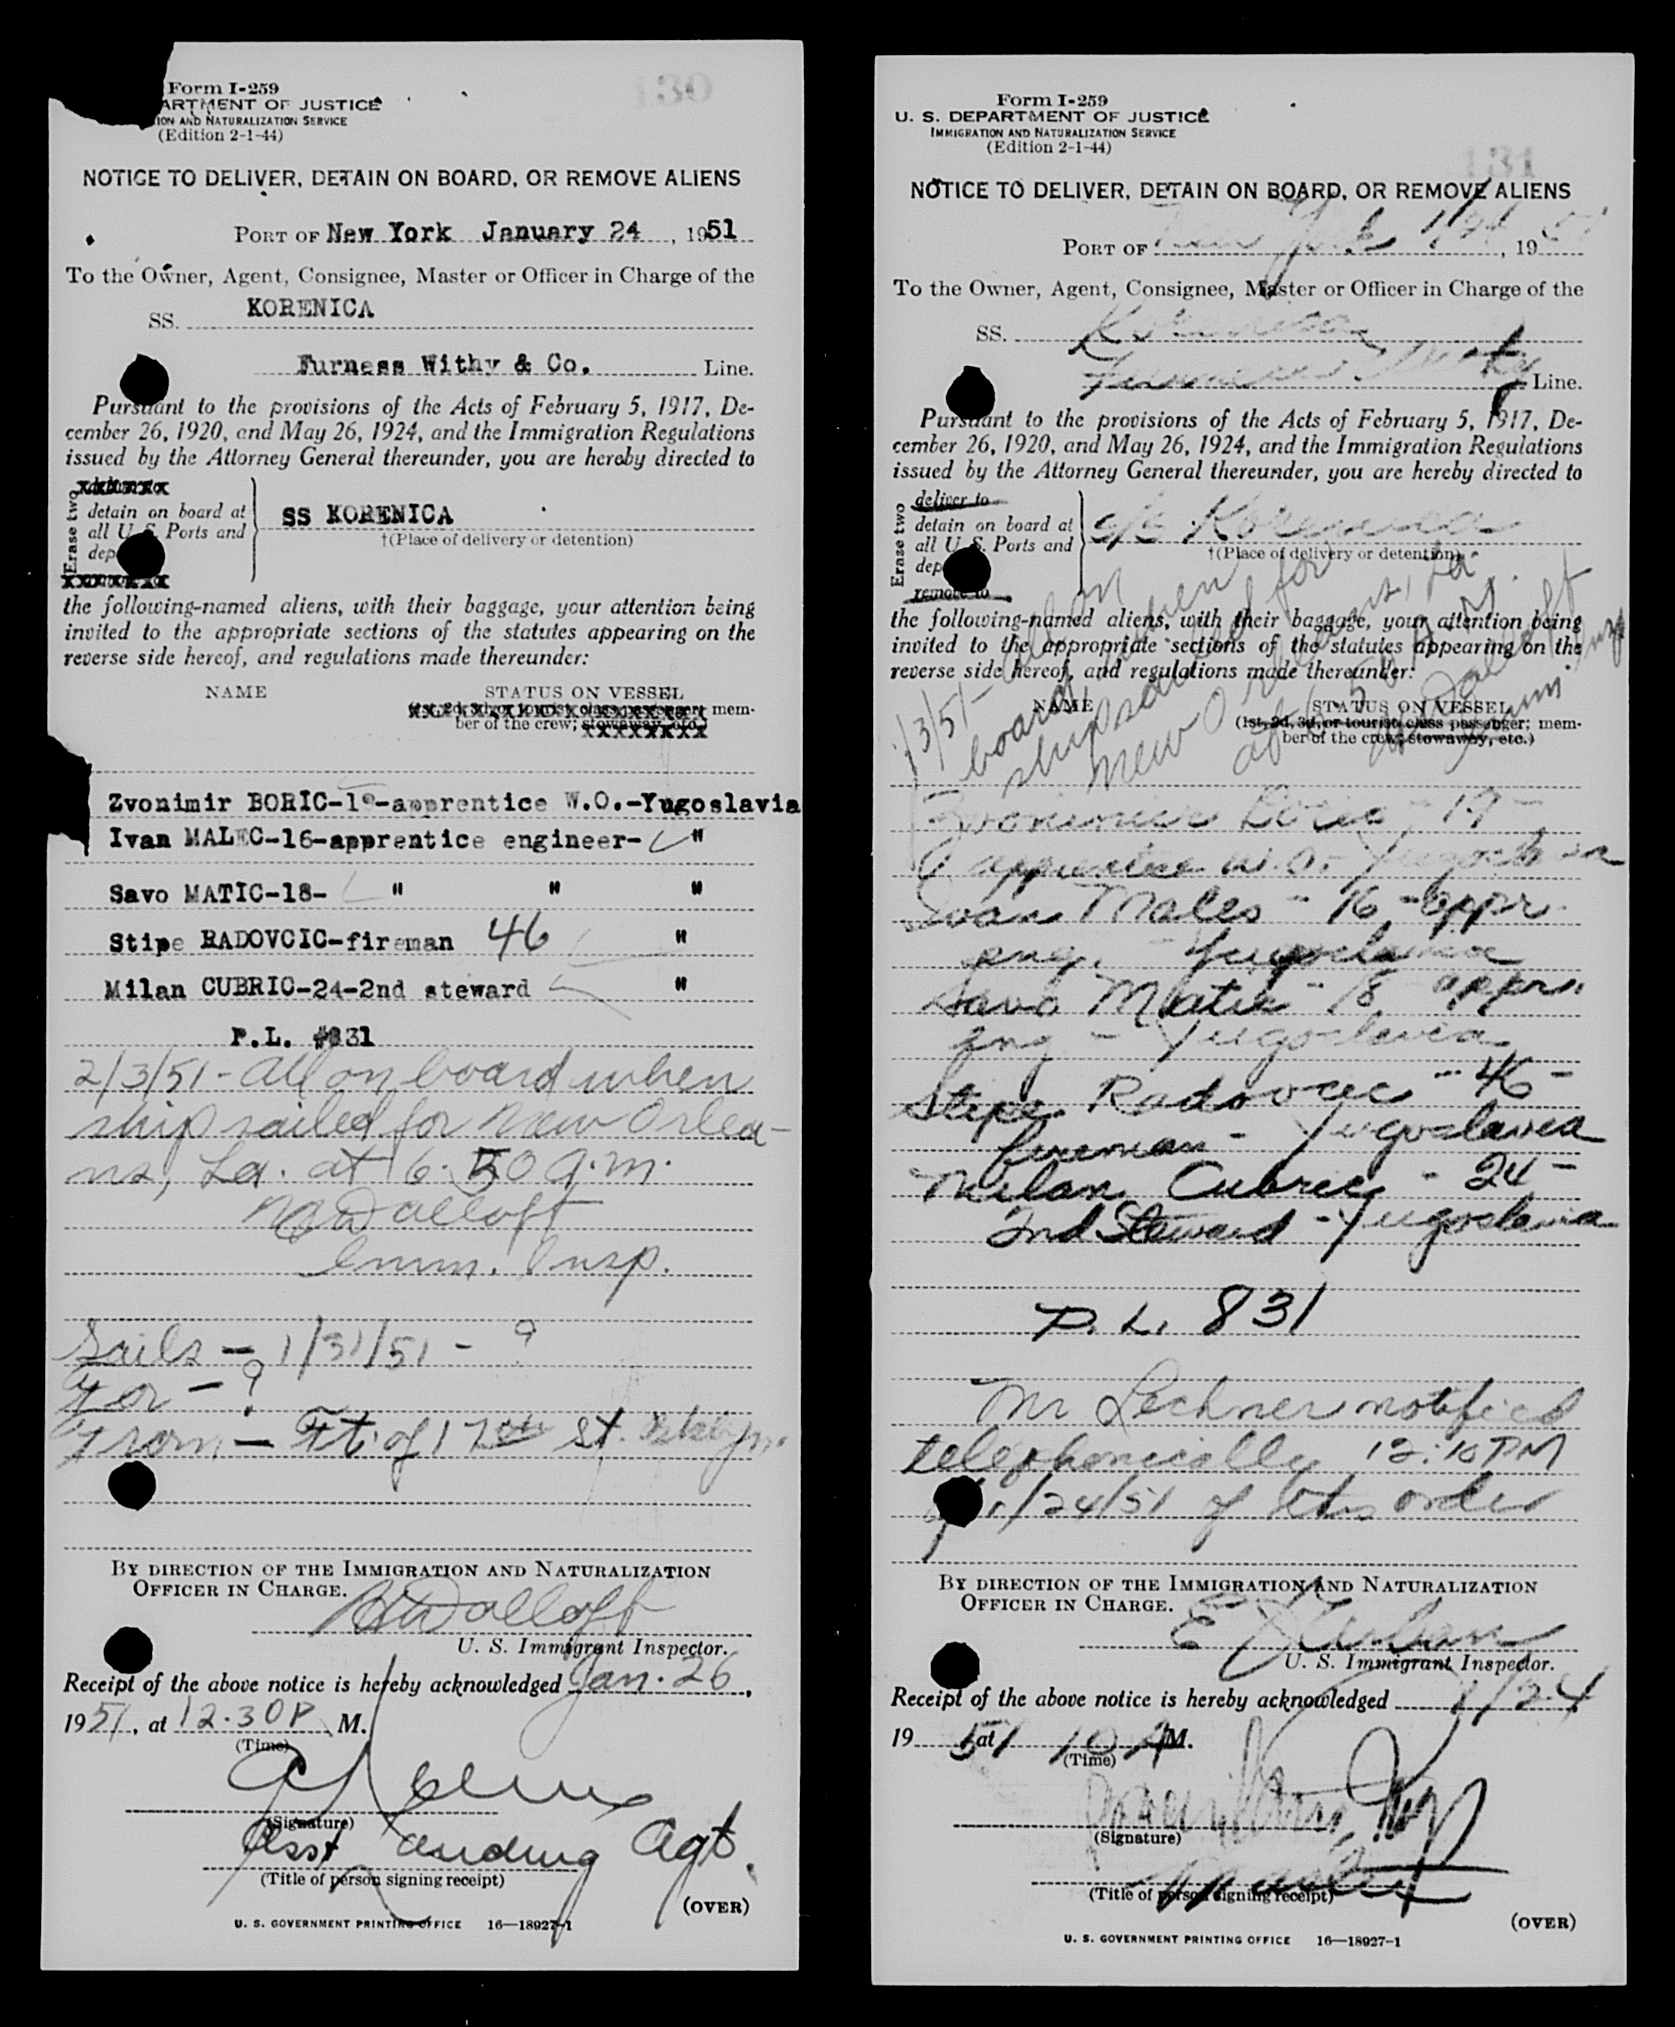 130
Form I-259
ARTMENT OF JUSTICE
ION AND NATURALIZATION SERVICE
(Edition 2-1-44)
NOTICE TO DELIVER, DETAIN ON BOARD, OR REMOVE ALIENS
PORT OF New York January 24, 1951
To the Owner, Agent, Consignee, Master or Officer in Charge of the
SS. KORENICA
Furness Withy & Co. Line.
Pursuant to the provisions of the Acts of February 5, 1917, De-
cember 26, 1920, and May 26, 1924, and the Immigration Regulations
issued by the Attorney General thereunder, you are hereby directed to
Erase two
detain on board at
all U. S. Ports and
dep
SS KORENICA
†(Place of delivery or detention)
the following-named aliens, with their baggage, your attention being
invited to the appropriate sections of the statutes appearing on the
reverse side hereof, and regulations made thereunder:
NAME STATUS ON VESSEL
mem-
ber of the crew; stowaway, etc.)
Zvonimir BORIC-19-apprentice W.O.-Yugoslavia
Ivan MALEC-16-apprentice engineer- "
Savo MATIC-18- " " "
Stipe RADOVCIC-fireman 46 "
Milan CUBRIC-24-2nd steward "
P.L. #831
2/3/51 - All on board when
ship sailed for New Orlea-
ns, La. at 6:50 a.m.
Imm. Insp.
Sails - 1/31/51 - ?
For - ?
From - Ft. of 17th St. Bklyn.
BY DIRECTION OF THE IMMIGRATION AND NATURALIZATION
OFFICER IN CHARGE.
U. S. Immigrant Inspector.
Receipt of the above notice is hereby acknowledged Jan. 26,
1951, at 12.30 P M.
(Time)
(Signature)
Asst Landing Agt.
(Title of person signing receipt)
(OVER)
U. S. GOVERNMENT PRINTING OFFICE 16—18927-1
131
Form I-259
U. S. DEPARTMENT OF JUSTICE
IMMIGRATION AND NATURALIZATION SERVICE
(Edition 2-1-44)
NOTICE TO DELIVER, DETAIN ON BOARD, OR REMOVE ALIENS
PORT OF New York 1/24, 1951
To the Owner, Agent, Consignee, Master or Officer in Charge of the
SS. Korenica
Furness Withy Line.
Pursuant to the provisions of the Acts of February 5, 1917, De-
cember 26, 1920, and May 26, 1924, and the Immigration Regulations
issued by the Attorney General thereunder, you are hereby directed to
Erase two
deliver to
detain on board at
all U. S. Ports and
dep
remove to
s/s Korenica
†(Place of delivery or detention)
the following-named aliens, with their baggage, your attention being
invited to the appropriate sections of the statutes appearing on the
reverse side hereof, and regulations made thereunder:
2/3/51 - All on
board when
ship sailed for
New Orleans, La.
at 6:50 A.M.
Imm. Insp
NAME STATUS ON VESSEL
(1st, 2d, 3d, or tourist class passenger; mem-
ber of the crew; stowaway, etc.)
Zvonimir Boric - 19 -
apprentice W.O. - Yugoslavia
Ivan Malec - 16 - appr.
eng. - Yugoslavia
Savo Matic - 18 appr.
eng - Yugoslavia
Stipe Radovcic - 46 -
fireman - Yugoslavia
Milan Cubric - 24 -
2nd Steward - Yugoslavia
P. L. 831
Mr Lechner notified
telephonically 12:10 PM
1/24/51 of this order
BY DIRECTION OF THE IMMIGRATION AND NATURALIZATION
OFFICER IN CHARGE.
U. S. Immigrant Inspector.
Receipt of the above notice is hereby acknowledged 1/24
1951 at 10 A M.
(Time)
(Signature)
Master
(Title of person signing receipt)
(OVER)
U. S. GOVERNMENT PRINTING OFFICE 16—18927-1